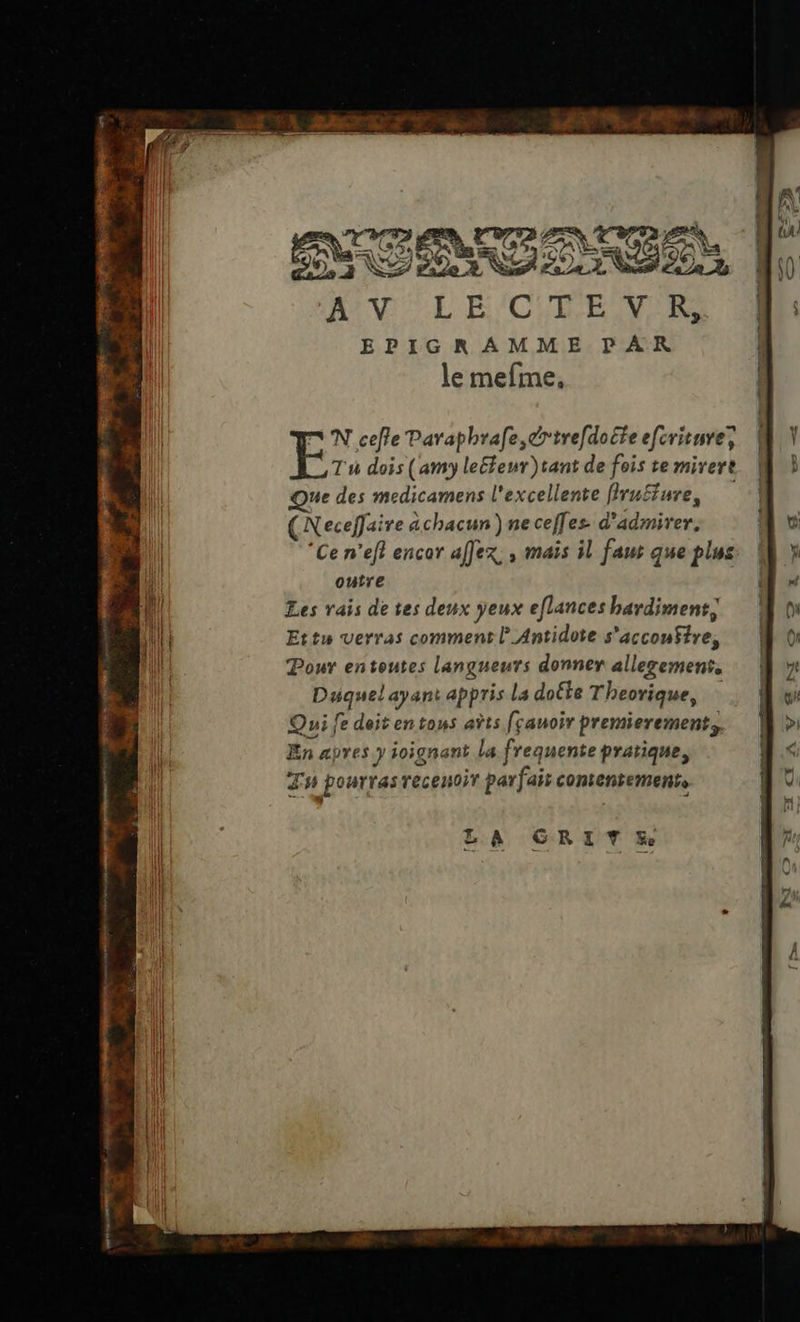 AV LECTEVR,
EPIGRAMME PAR
le meſme.
EN ceſte Paraphraſe, & treſdocte eſcriture,
Tu dois (amy lecteur) tant de fois te mirer
Que des medicamens l'excellente ſtructure,
(Neceſſaire à chacun) ne ceſſes d'admirer.
Ce n'eſt encor aſſez, mais il faut que plus
outre
Les rais de tes deux yeux eſlances hardiment,
Et tu verras comment l'Antidote s'accouſtre,
Pour en toutes langueurs donner allegement.
Duquel ayant appris la docte Theorique,
Qui ſe doit en tous arts ſçauoir premierement,
En apres y ioignant la frequente pratique,
Tu pourras receuoir parfait contentement.
LA GRITE